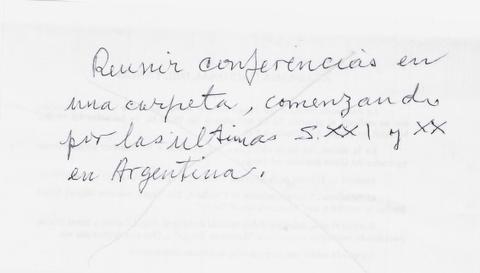 Reunir conferencias en
una carpeta, comenzando
por las ultimas S. XXI y XX
en Argentina.